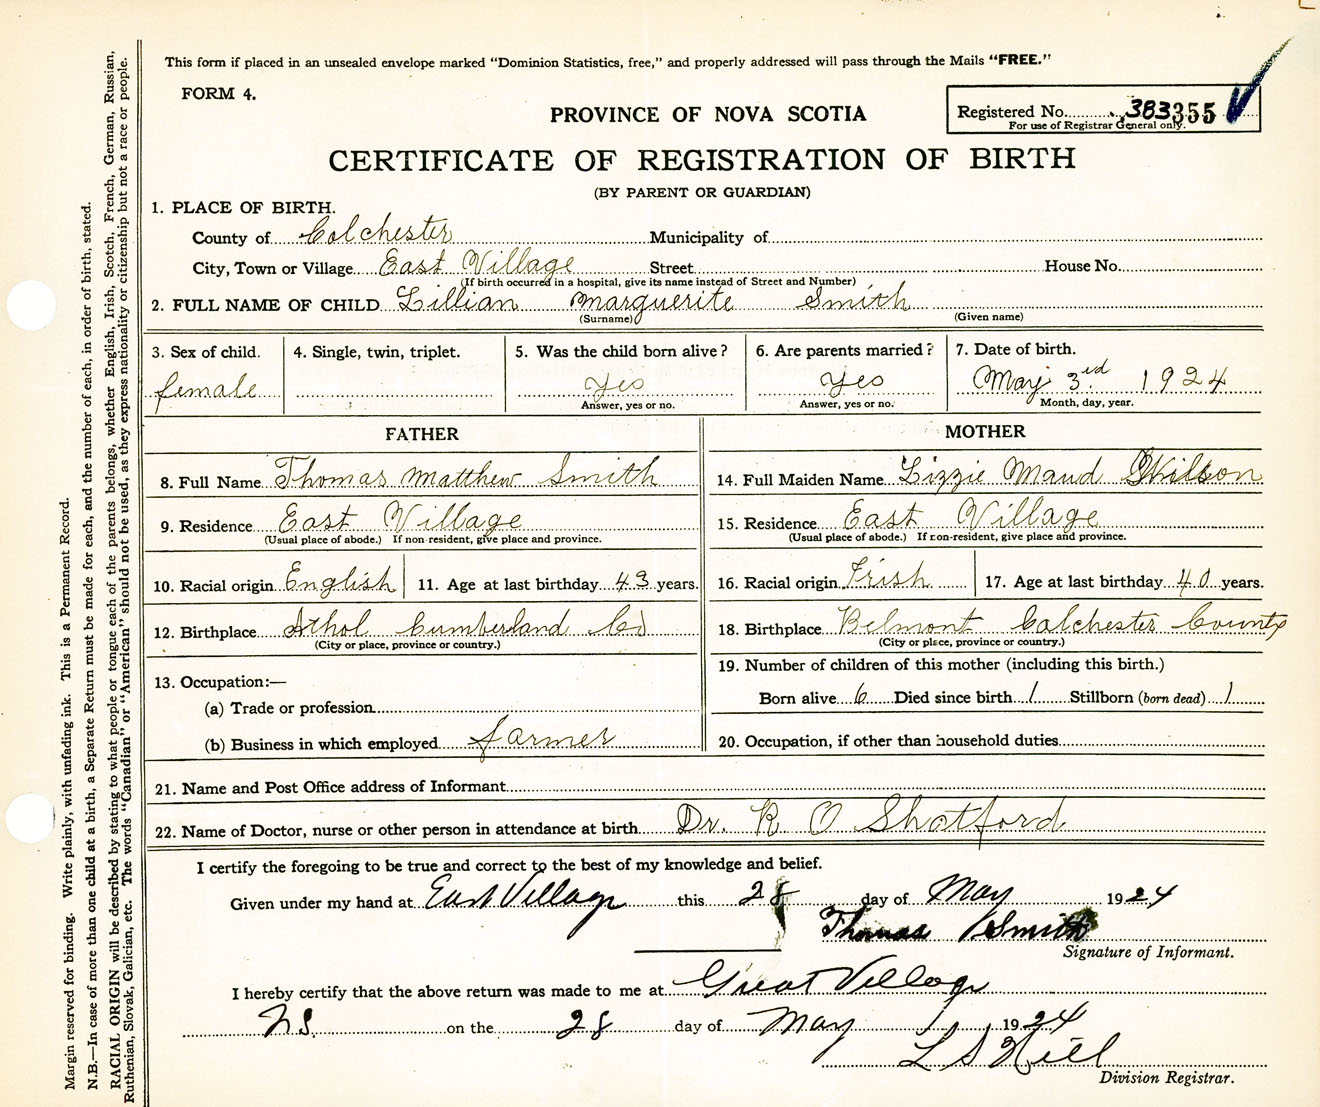 This form if placed in an unsealed envelope marked "Dominion Statistics, free," and properly addressed will pass through the Mails "FREE."
FORM 4.
PROVINCE OF NOVA SCOTIA
Registered No. 383355
For use of Registrar General only.
CERTIFICATE OF REGISTRATION OF BIRTH
(BY PARENT OR GUARDIAN)
1. PLACE OF BIRTH.
County of Colchester Municipality of
City, Town or Village East Village Street House No.
(If birth occurred in a hospital, give its name instead of Street and Number)
2. FULL NAME OF CHILD Lillian Marguerite Smith
(Surname) (Given name)
3. Sex of child. 4. Single, twin, triplet. 5. Was the child born alive? 6. Are parents married? 7. Date of birth.
female Yes Yes May 3rd 1924
Answer, yes or no. Answer, yes or no. Month, day, year.
FATHER
8. Full Name Thomas Matthew Smith
9. Residence East Village
(Usual place of abode.) If non-resident, give place and province.
10. Racial origin English 11. Age at last birthday 43 years.
12. Birthplace Athol Cumberland Co
(City or place, province or country.)
13. Occupation:—
(a) Trade or profession
(b) Business in which employed farmer
MOTHER
14. Full Maiden Name Lizzie Maud Wilson
15. Residence East Village
(Usual place of abode.) If non-resident, give place and province.
16. Racial origin Irish 17. Age at last birthday 40 years.
18. Birthplace Belmont Colchester County
(City or place, province or country.)
19. Number of children of this mother (including this birth.)
Born alive 6 Died since birth 1 Stillborn (born dead) 1
20. Occupation, if other than household duties
21. Name and Post Office address of Informant
22. Name of Doctor, nurse or other person in attendance at birth Dr. R O Shatford
I certify the foregoing to be true and correct to the best of my knowledge and belief.
Given under my hand at East Village this 28 day of May 1924
Thomas Smith
Signature of Informant.
I hereby certify that the above return was made to me at Great Village
NS on the 28 day of May 1924
L S Hill
Division Registrar.
Margin reserved for binding. Write plainly, with unfading ink. This is a Permanent Record.
N.B.—In case of more than one child at a birth, a Separate Return must be made for each, and the number of each, in order of birth, stated.
RACIAL ORIGIN will be described by stating to what people or tongue each of the parents belongs, whether English, Irish, Scotch, French, German, Russian,
Ruthenian, Slovak, Galician, etc. The words "Canadian" or "American" should not be used, as they express nationality or citizenship but not a race or people.